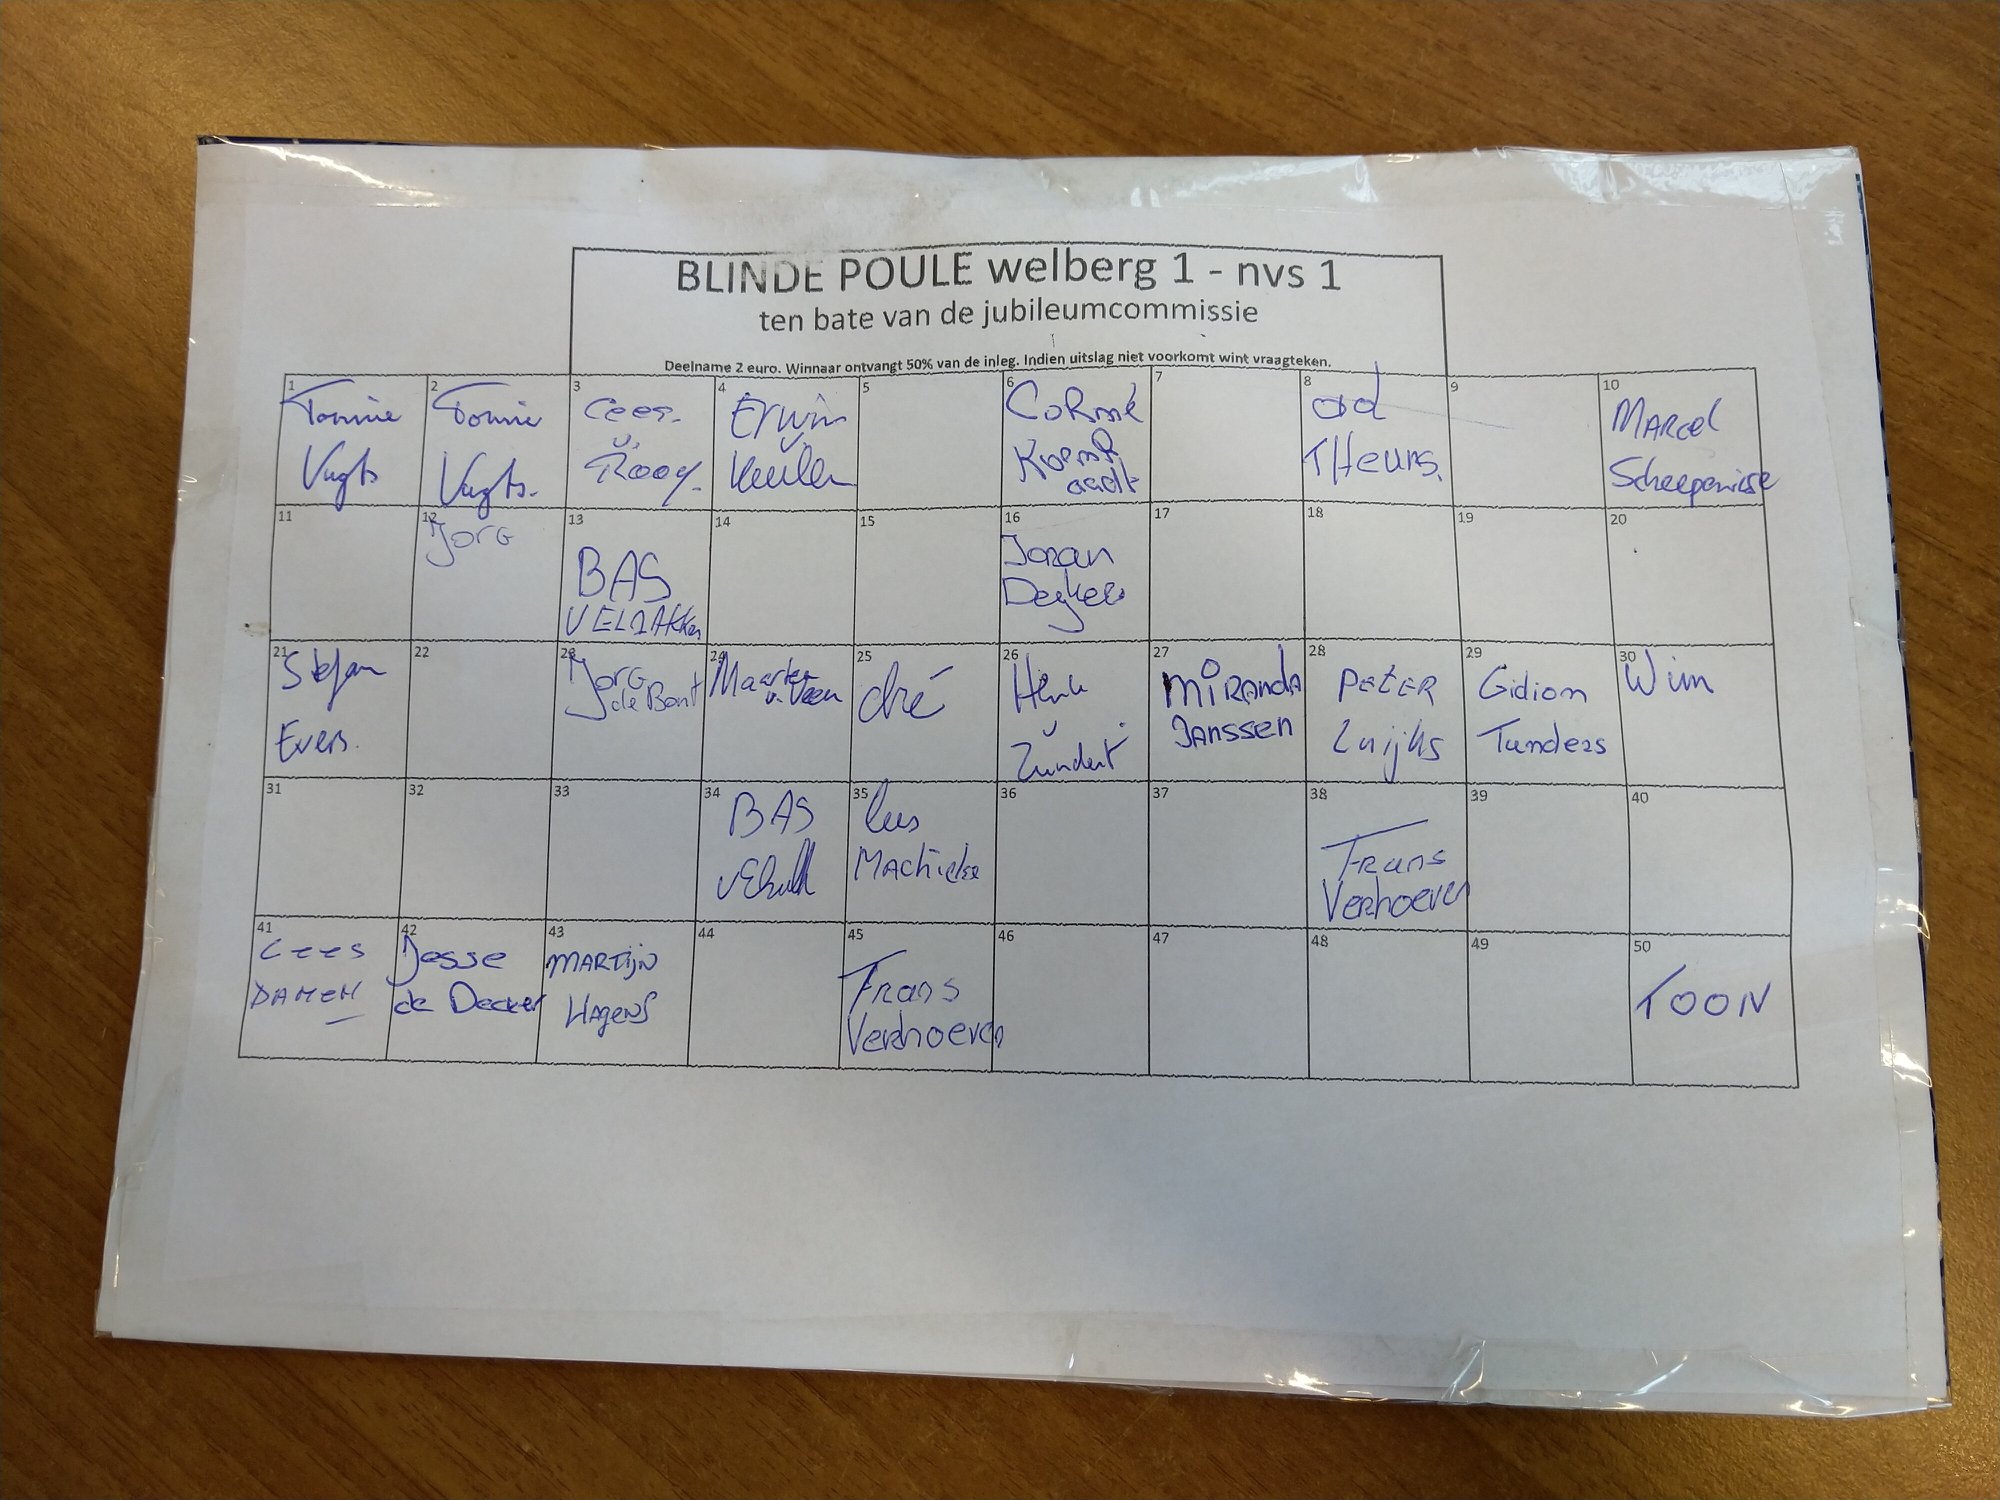 BLINDE POULE welberg 1 - nvs 1
ten bate van de jubileumcommissie
Deelname 2 euro. Winnaar ontvangt 50% van de inleg. Indien uitslag niet voorkomt wint vraagteken.
1
Tonnie
Vugts
2
Tonnie
Vugts.
3
Cees.
v.
Rooy.
4
Erwin
v
Keulen
5
6
CoRné
7
8
ad
THeuns.
9
10
MARcel
11
12
Jorg
13
BAS
14
15
16
Joran
17
18
19
20
21
Stefan
Evers.
22
23
Jorg
de Bont
24
Maarten
v. Veen
25
dré
26
Henk
v
Zundert
27
MIRANDA
JANSSEN
28
PETER
Luijks
29
Gidion
Tunders
30
Wim
31
32
33
34
BAS
35
MAchielse
36
37
38
Frans
Verhoeven
39
40
41
Cees
DAMEN
42
Jesse
de Decker
43
MARTIJN
HAgens
44
45
Frans
Verhoeven
46
47
48
49
50
TOON